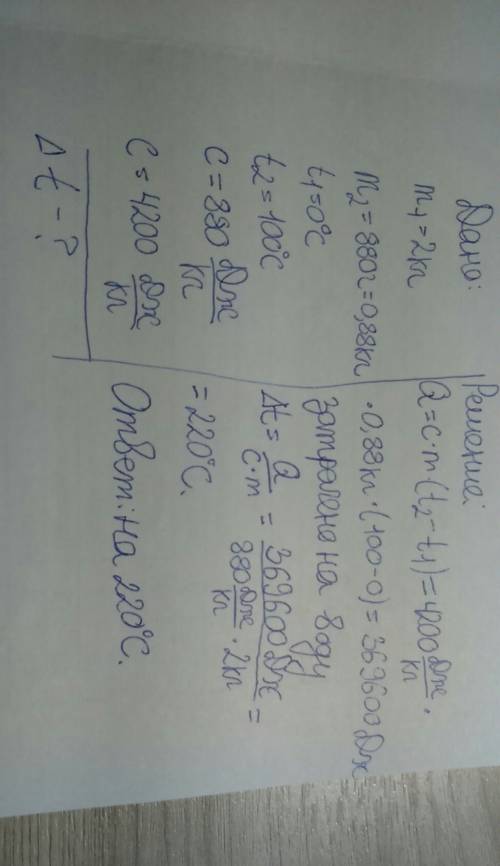 Дано:
m1 = 2кг
m2 = 880г = 0,88кг
t1 = 0°C
t2 = 100°C
C = 880 Дж/кг
C = 4200 Дж/кг
Δt - ?
Решение:
Q = c·m(t2 - t1) = 4200 Дж/кг ·
· 0,88кг · (100-0) = 369600 Дж
затрачено на воду
Δt = Q/c·m = 369600 Дж/880 Дж/кг · 2кг =
= 220°C.
Ответ: на 220°C.